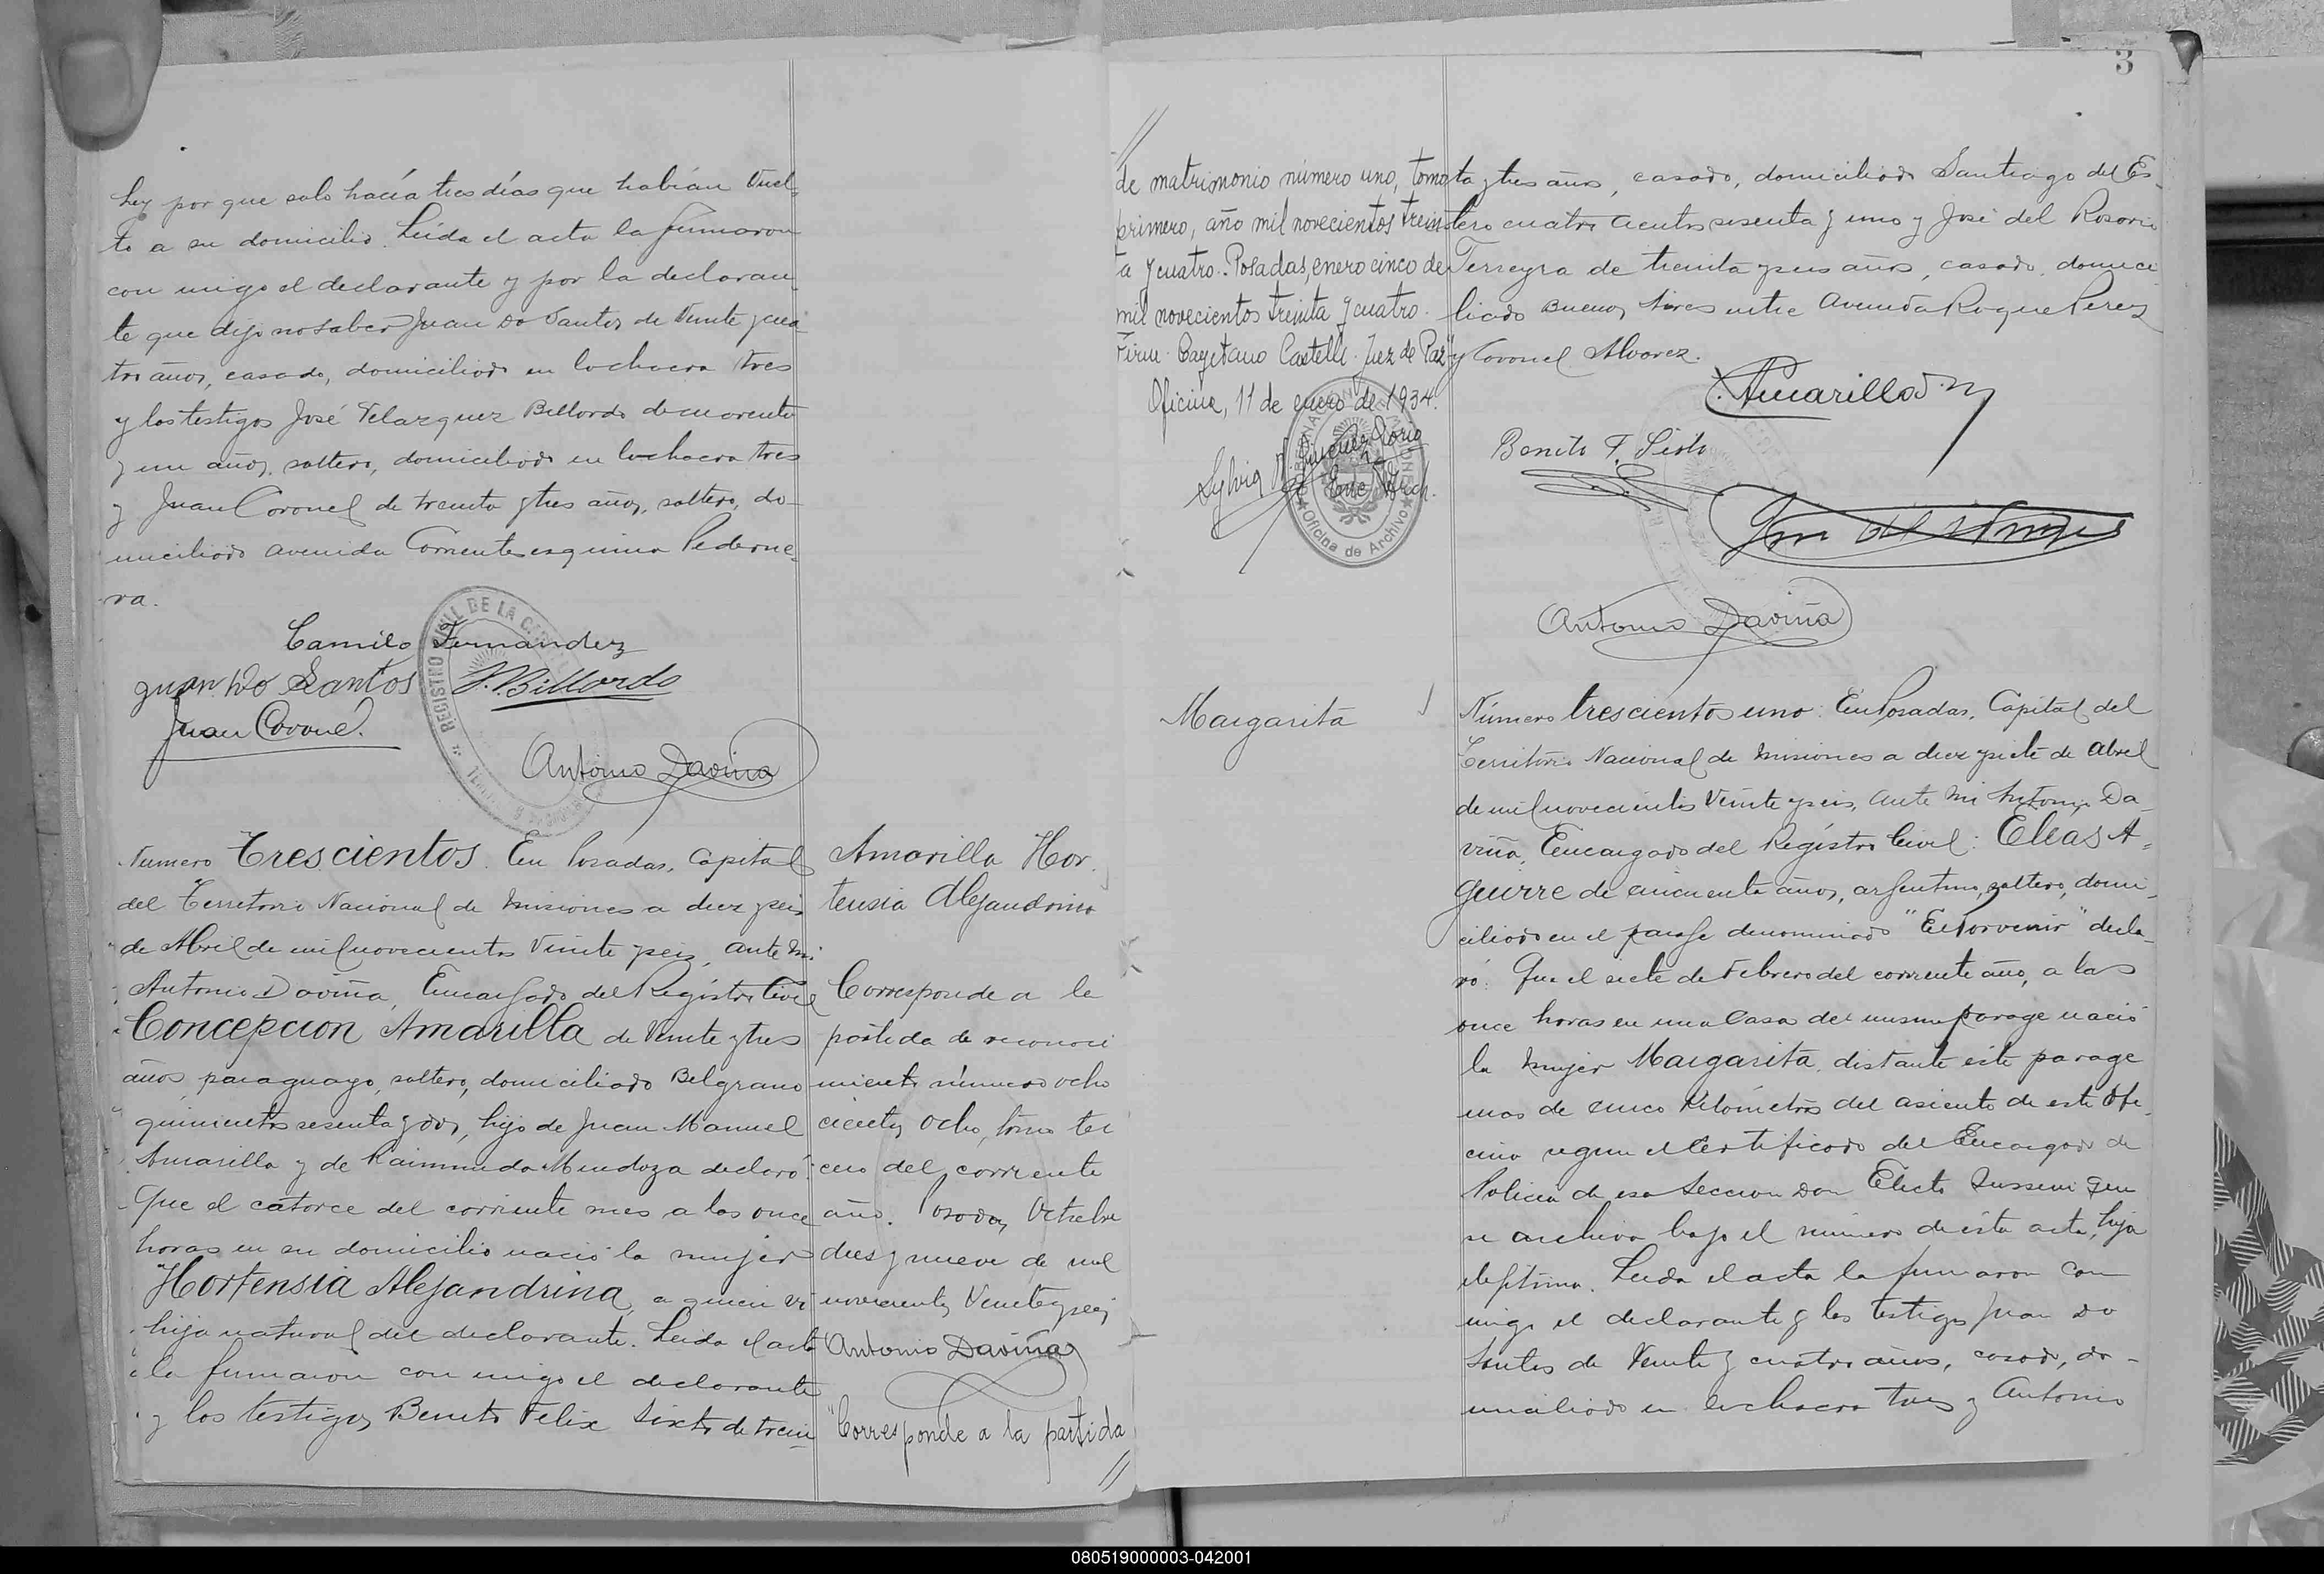 ley por que solo hacía tres días que habían Vuel-
to a su domicilio. Leída el acta la firmaron
con migo el declarante y por la declaran-
te que dijo no saber Juan Do Santos de Veinte y cua-
tro años, casado, domiciliado en la chacra tres
y los testigos José Velazquez Billordo de cuarenta
y un años, soltero, domiciliado en la chacra tres
y Juan Coronel de treinta y tres años, soltero, do-
miciliado Avenida Corrientes esquina Pederne-
ra.
Camilo Fernandez
Juan Do Santos J. Billordo
Juan Coronel.
REGISTRO CIVIL DE LA
Antonio Daviña
Numero Trescientos. En Posadas, Capital
del Territorio Nacional de Misiones a diez y seis
de Abril de mil novecientos Veinte y seis, ante mi
Antonio Daviña, Encargado del Registro Civil
Concepcion Amarilla de Veinte y tres
años, paraguayo, soltero, domiciliado Belgrano
quinientos sesenta y dos, hijo de Juan Manuel
Amarilla y de Raimunda Mendoza declaró:
Que el catorce del corriente mes a las once
horas en su domicilio nació la mujer
Hortensia Alejandrina, a quien vi
hija natural del declarante. Leida el acta
la firmaron con migo el declarante
y los testigos Benito Felix Sixto de trein-
Amarilla Hor-
tensia Alejandrina
Corresponde a la
partida de reconoci
miento número ocho
cientos ocho, tomo ter
cero del corriente
año. Posadas, Octubre
diez y nueve de mil
novecientos Veinte y seis
Antonio Daviña
"Corresponde a la partida
//
3
//
de matrimonio número uno, tomo
primero, año mil novecientos trein
ta y cuatro. Posadas, enero cinco de
mil novecientos treinta y cuatro.
Firm. Cayetano Castelli. Juez de Paz"
Oficina, 11 de enero de 1934.
Sylvia
Enc. Arch.
Oficina de Archivo
ta y tres años, casado, domiciliado Santiago del Es-
tero cuatro cientos sesenta y uno y José del Rosario
Ferreyra de treinta y seis años, casado, domici
liado Buenos Aires entre Avenida Roque Perez
y Coronel Alvarez.
C. Amarilla M
Benito F. Sixto
Antonio Daviña
Margarita
Número trescientos uno: En Posadas, Capital del
Territorio Nacional de Misiones a diez y siete de Abril
de mil novecientos Veinte y seis, ante mi Antonio Da-
viña, Encargado del Registro Civil: Elias A-
guirre de cincuenta años, argentino, soltero, domi-
ciliado en el parage denominado "El Porvenir" decla-
ró: Que el siete de Febrero del corriente año, a las
once horas en una Casa del mismo parage nació
la mujer Margarita, distante este parage
mas de cinco Kilómetros del asiento de esta Ofi-
cina segun el Certificado del Encargado de
Policía de esa Seccion Don Electo que
se archiva bajo el número de esta acta, hija
ilegítima. Leida el acta la firmaron con
migo el declarante y los testigos Juan Do
Santos de Veinte y cuatro años, casado, do-
miciliado en la chacra tres y Antonio
080519000003-042001